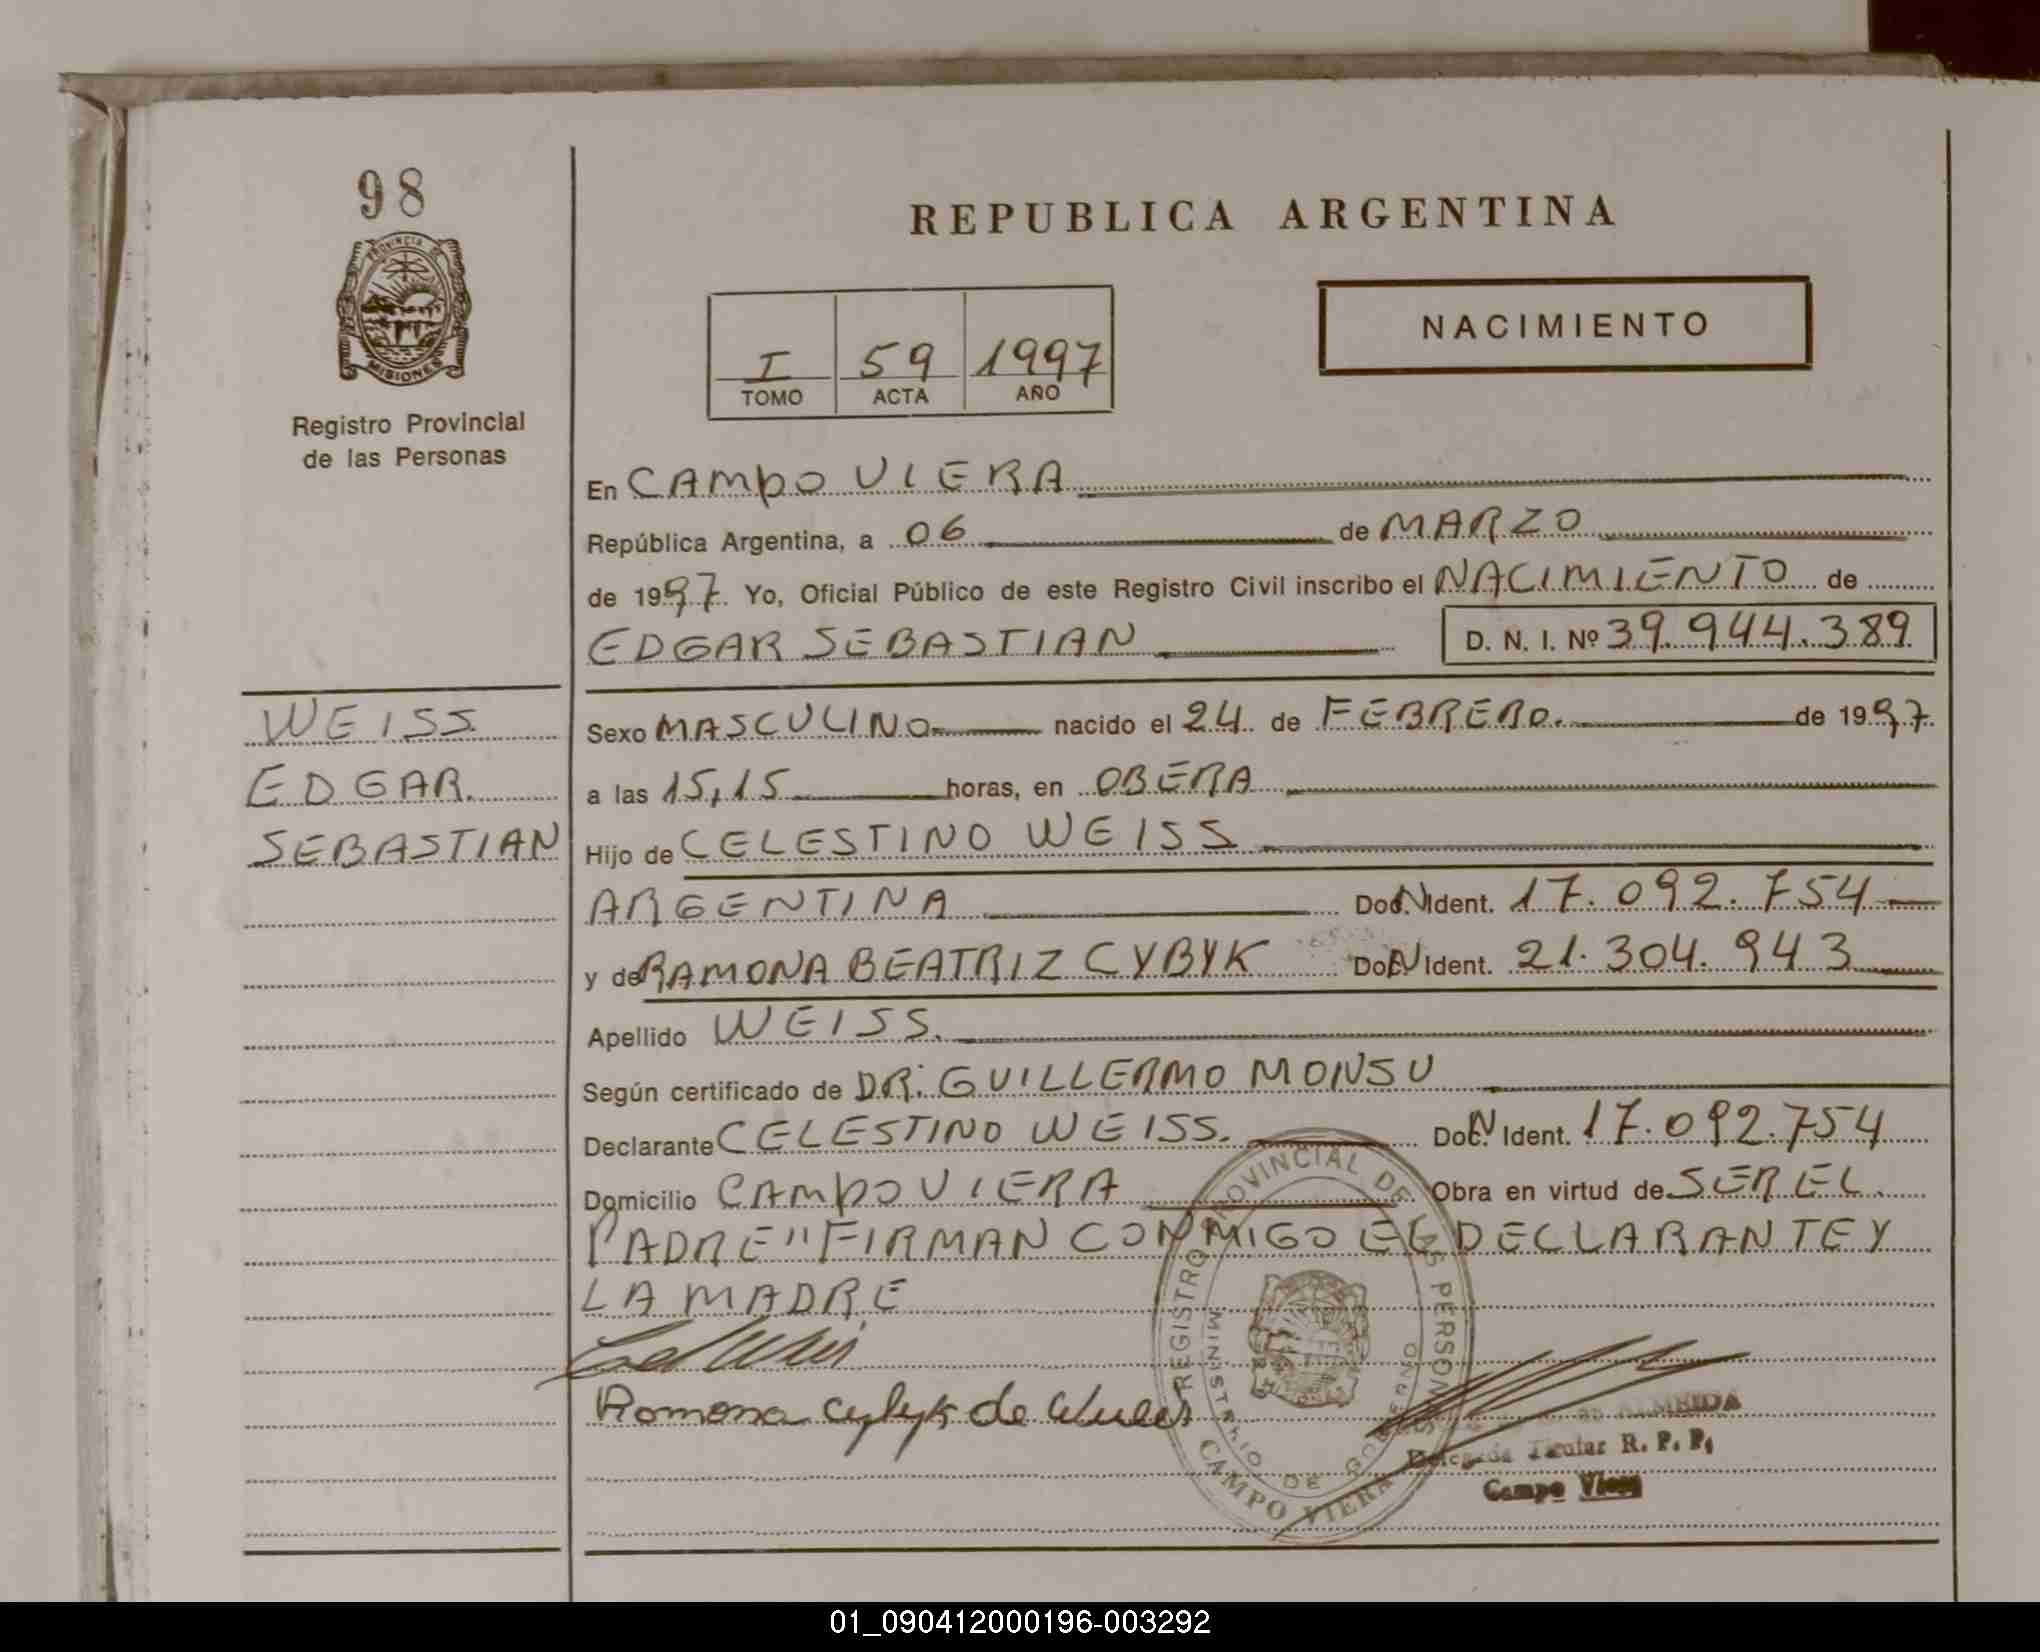 98
PROVINCIA DE
MISIONES
Registro Provincial
de las Personas
REPUBLICA ARGENTINA
NACIMIENTO
I 59 1997
TOMO ACTA AÑO
En CAMPO VIERA
República Argentina, a 06 de MARZO
de 1997. Yo, Oficial Público de este Registro Civil inscribo el NACIMIENTO de
EDGAR SEBASTIAN D. N. I. Nº 39.944.389
WEISS
EDGAR
SEBASTIAN
Sexo MASCULINO nacido el 24 de FEBRERO. de 1997.
a las 15,15 horas, en OBERA
Hijo de CELESTINO WEISS
ARGENTINA Doc. Ident. 17.092.754
y de RAMONA BEATRIZ CYBYK Doc. Ident. 21.304.943
Apellido WEISS.
Según certificado de DR. GUILLERMO MONSU
Declarante CELESTINO WEISS. Doc. Ident. 17.092.754
Domicilio CAMPO VIERA Obra en virtud de SER EL
PADRE" FIRMAN CONMIGO EL DECLARANTE Y
LA MADRE
Ramona Cybyk de Weiss
REGISTRO PROVINCIAL DE LAS PERSONAS
MINISTERIO DE GOBIERNO
CAMPO VIERA
ALMEIDA
Delegada Titular R. P. P.
Campo Viera
01_090412000196-003292